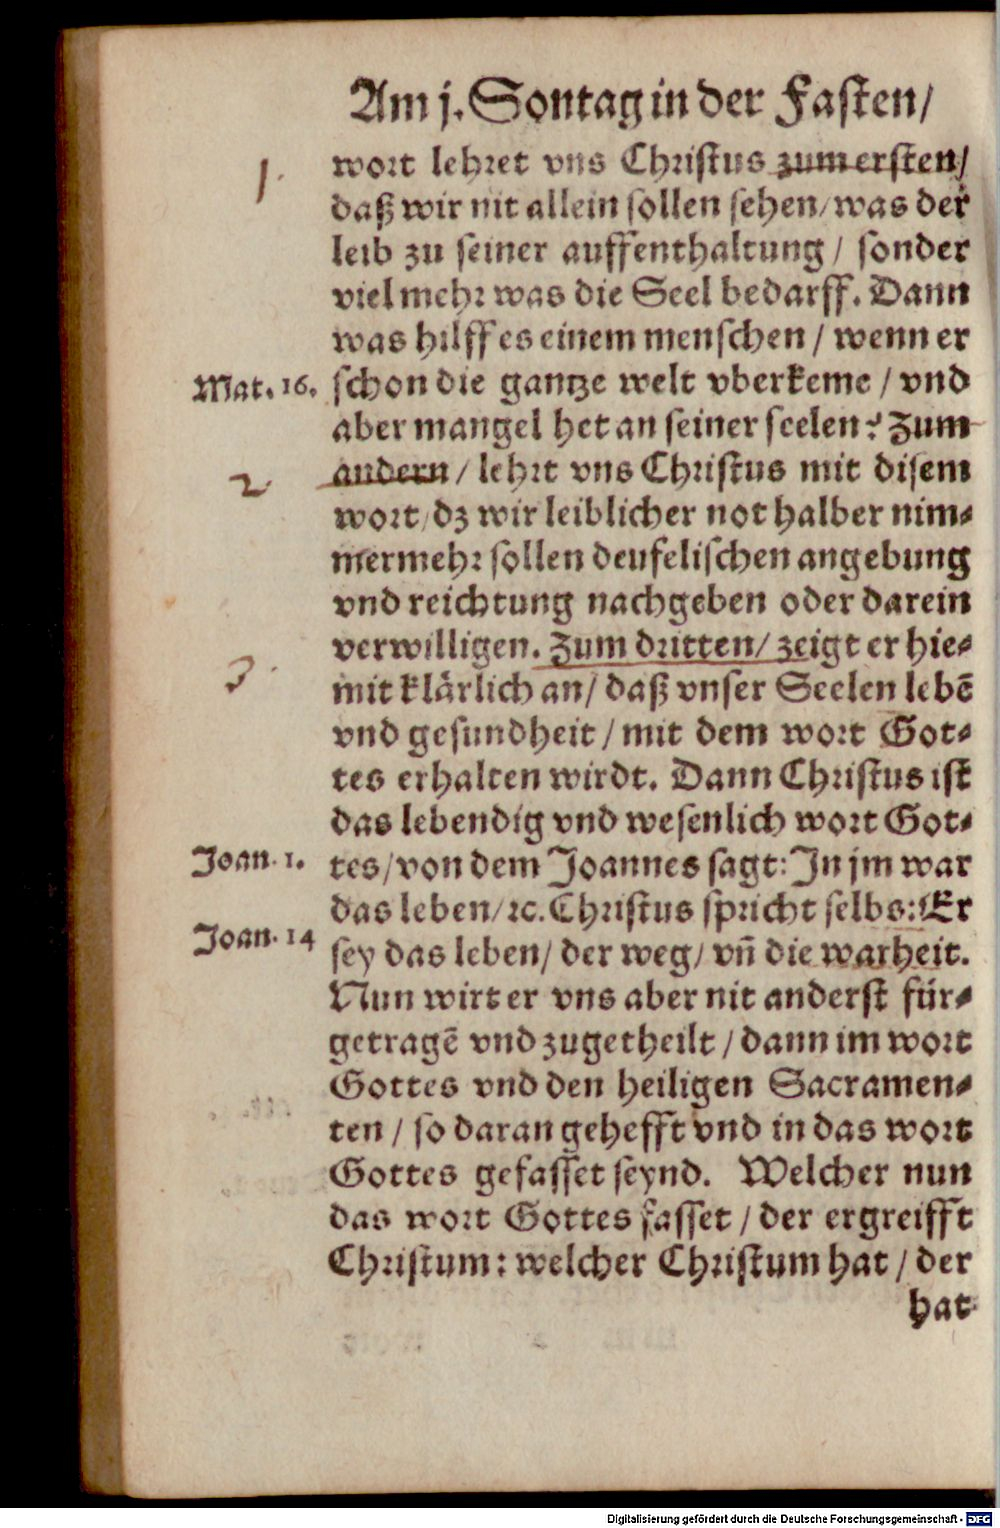 Am j. Sontag in der Fasten/
1.
wort lehret vns Christus zum ersten/
daß wir nit allein sollen sehen/was der
leib zu seiner auffenthaltung / sonder
viel mehr was die Seel bedarff. Dann
was hilff es einem menschen / wenn er
Mat. 16.
schon die gantze welt vberkeme / vnd
aber mangel het an seiner seelen? Zum
2
andern / lehrt vns Christus mit disem
wort/dz wir leiblicher not halber nim⸗
mermehr sollen deufelischen angebung
vnd reichtung nachgeben oder darein
verwilligen. Zum dritten/ zeigt er hie⸗
3.
mit klärlich an/ daß vnser Seelen lebẽ
vnd gesundheit / mit dem wort Got⸗
tes erhalten wirdt. Dann Christus ist
das lebendig vnd wesenlich wort Got⸗
Joan. 1.
tes/von dem Joannes sagt: In jm war
das leben/ꝛc. Christus spricht selbs: Er
Joan. 14
sey das leben/ der weg/ vñ die warheit.
Nun wirt er vns aber nit anderst für⸗
getragẽ vnd zugetheilt / dann im wort
Gottes vnd den heiligen Sacramen⸗
ten / so daran gehefft vnd in das wort
Gottes gefasset seynd. Welcher nun
das wort Gottes fasset / der ergreifft
Christum: welcher Christum hat / der
hat
Digitalisierung gefördert durch die Deutsche Forschungsgemeinschaft - DFG